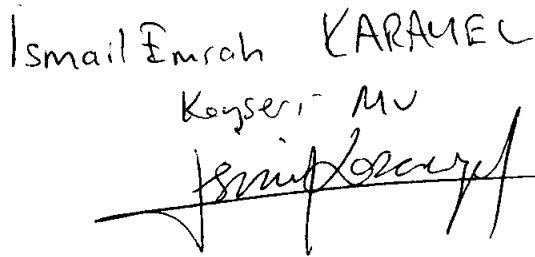 İsmail Emrah KARAYEL
Kayseri MV